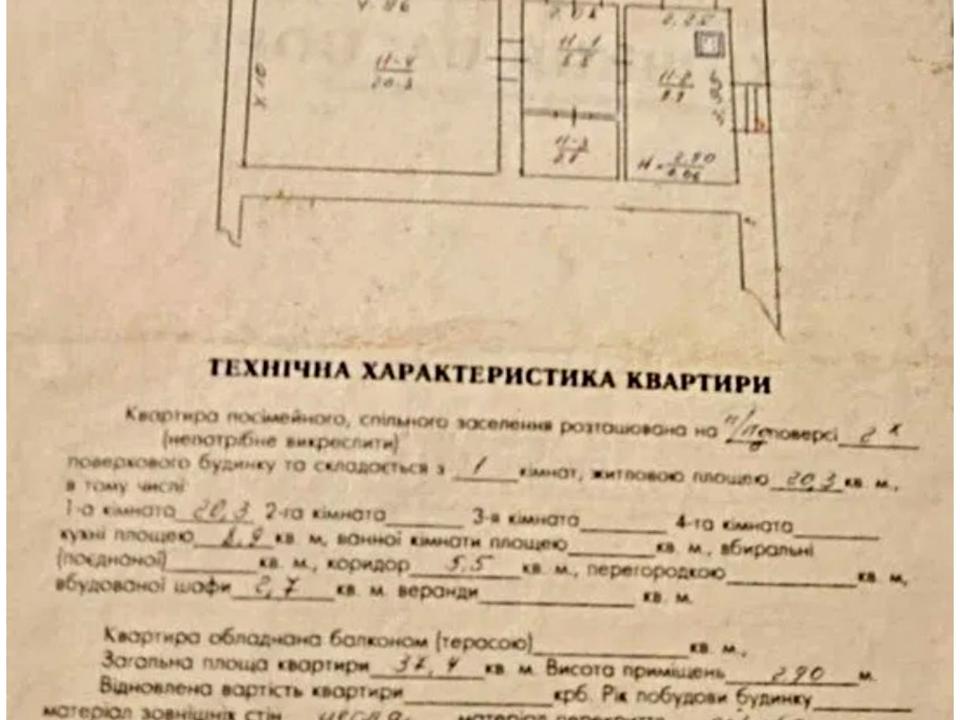 4.96
2.25
11-4
20.3
11-1
5.5
11-2
8.9
11-3
2.7
H = 2.90
ТЕХНІЧНА ХАРАКТЕРИСТИКА КВАРТИРИ
Квартира посімейного, спільного заселення розташована на н/под поверсі 2 х
(непотрібне викреслити)
поверхового будинку та складається з 1 кімнат, житловою площею 20,3 кв. м.,
в тому числі:
1-а кімната 20,3 2-га кімната 3-я кімната 4-та кімната
кухні площею 8,9 кв. м, ванної кімнати площею кв. м., вбиральні
(поєднаної) кв. м., коридор 5.5 кв. м., перегородкою кв. м,
вбудованої шафи 2,7 кв. м. веранди кв. м.
Квартира обладнана балконом (терасою) кв. м.,
Загальна площа квартири 37,4 кв. м. Висота приміщень 290 м.
Відновлена вартість квартири крб. Рік побудови будинку
матеріал зовнішніх стін матеріал перекриття